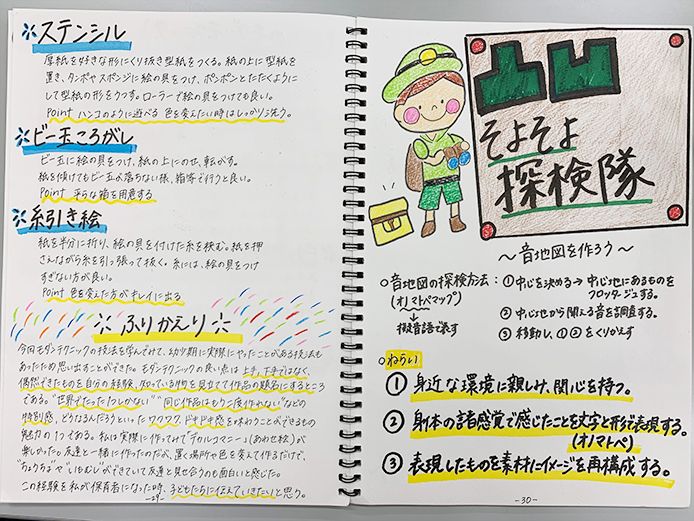 ※ステンシル
厚紙を好きな形にくり抜き型紙をつくる。紙の上に型紙を
置き、タンポやスポンジに絵の具をつけ、ポンポンとたたくように
して型紙の形をうつす。ローラーで絵の具をつけても良い。
Point ハンコのように遊べる 色を変えたい時はしっかり洗う。
※ビー玉ころがし
ビー玉に絵の具をつけ、紙の上にのせ、転がす。
紙を傾けてもビー玉の落ちない様、箱等で行うと良い。
Point 平らな箱を用意する
※糸引き絵
紙を半分に折り、絵の具を付けた糸を挟む。紙を押
さえながら糸を引っ張って抜く。糸には、絵の具をつけ
すぎない方が良い。
Point 色を変えた方がキレイに出る
※ふりかえり※
今回モダンテクニックの技法を学んでみて、幼少期に実際にやったことがある技法も
あったため思い出すことができた。モダンテクニックの良い点は上手、下手ではなく、
偶然できたものを自分の経験、知っている物を見立てて作品の題名にするところ
である。"世界でたった1つしかない""同じ作品はもう二度作れない"などの
特別感、どうなるんだろうといったワクワク、ドキドキ感を味わうことができるのも
魅力の1つである。私は実際に作ってみて「デカルコマニー」(あわせ絵)が
楽しかった。友達と一緒に作ったのだが、置く場所や色を変えて作るだけで、
"ちょうちょ"や"いもむし"ができていて友達と見せ合うのも面白いと感じた。
この経験を私が保育者になった時、子どもたちに伝えていきたいと思う。
-29-
凸凹
そよそよ
探検隊
〜音地図を作ろう〜
○音地図の探検方法:①中心を決める→中心地にあるものを
(オノマトペマップ)
フロッタージュする。
↓
擬音語で表す
②中心地から聞える音を調査する。
③移動し、①②をくりかえす
○ねらい
①身近な環境に親しみ、関心を持つ。
②身体の諸感覚で感じたことを文字と形で表現する。
(オノマトペ)
③表現したものを素材にイメージを再構成する。
-30-